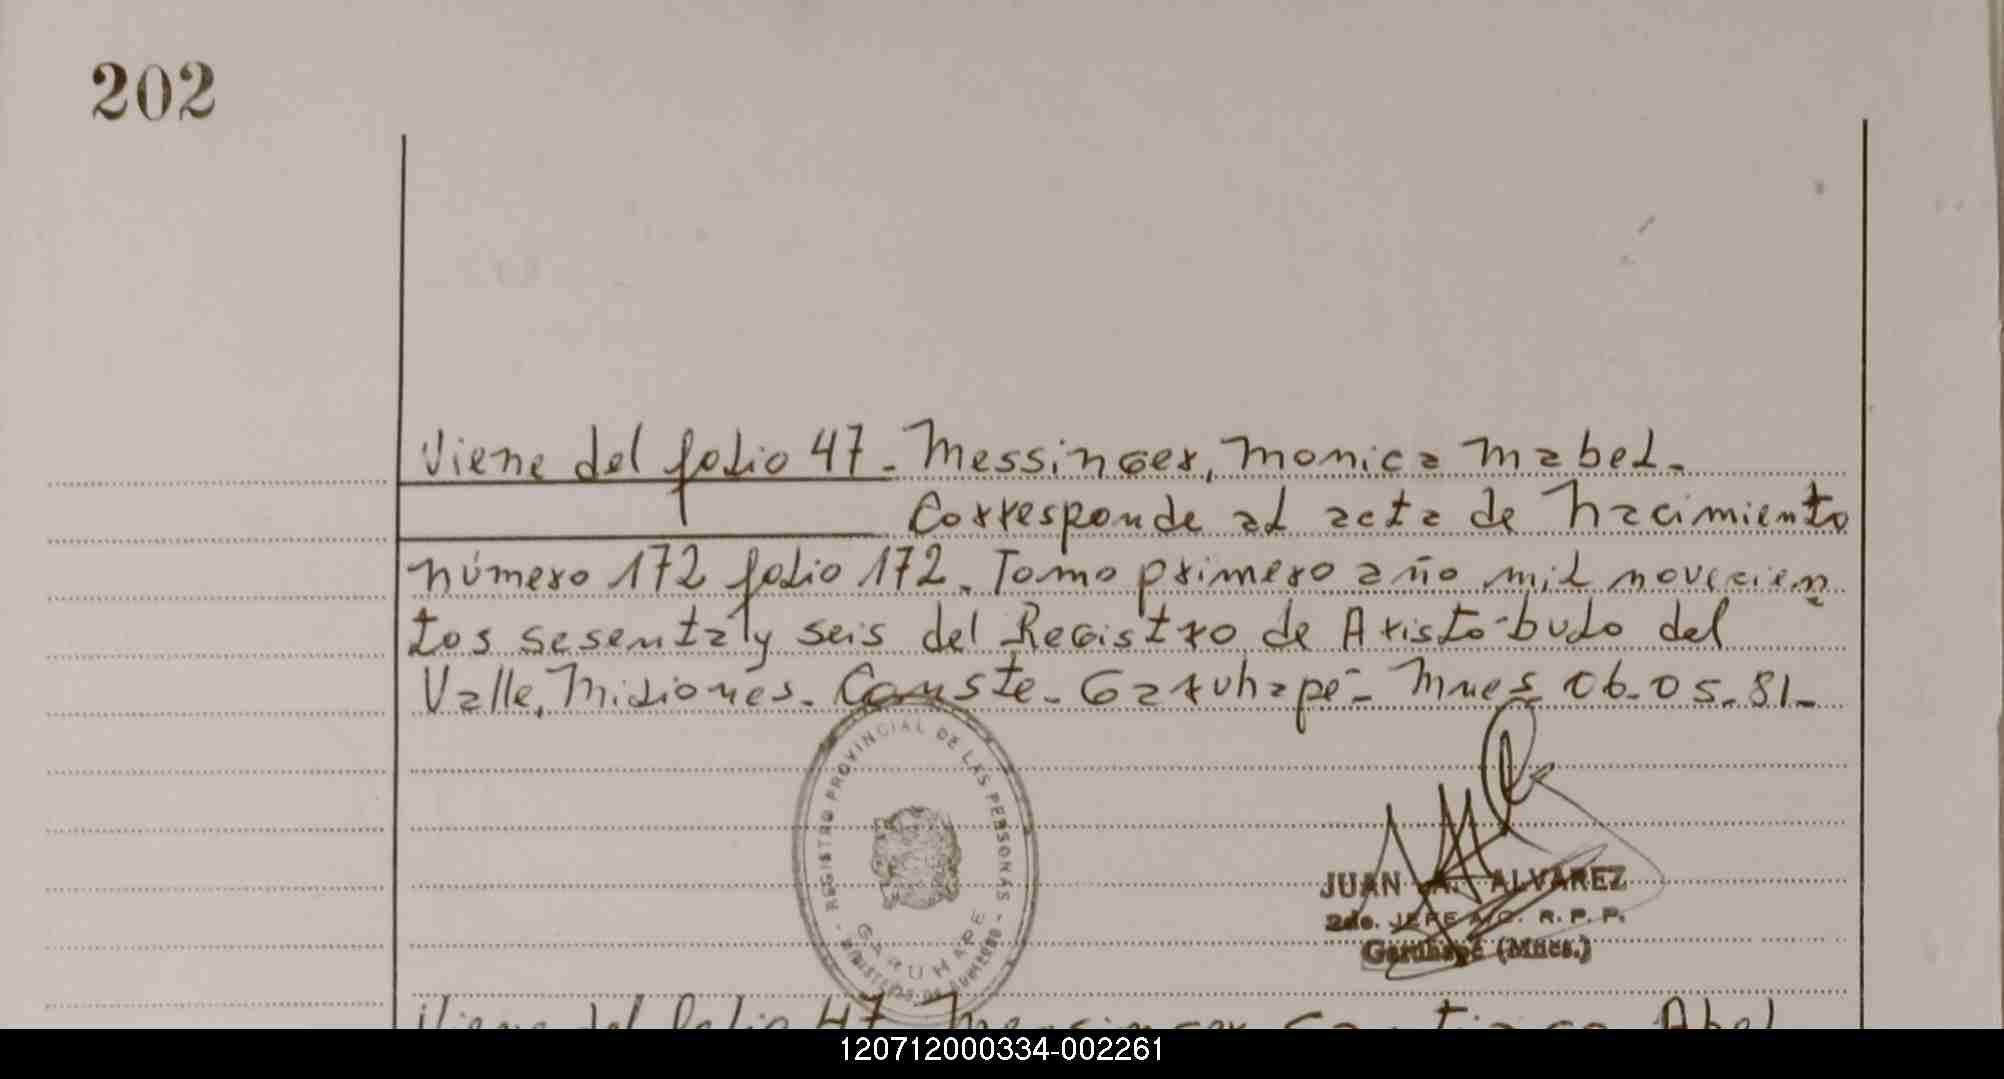 202
Viene del folio 47_ Messinger, Monica Mabel_
Corresponde al acta de Nacimiento
número 172 folio 172_ Tomo primero año mil novecien
tos sesenta y seis del Registro de Aristobulo del
Valle, Misiones_ Conste_ Garuhapé_ Mnes 06-05-81_
REGISTRO PROVINCIAL DE LAS PERSONAS
GARUHAPE
JUAN A. ALVAREZ
2do. JEFE A/C. R. P. P.
Garuhapé (Mnes.)
Viene del folio 47 Messinger Santiago Abel
120712000334-002261